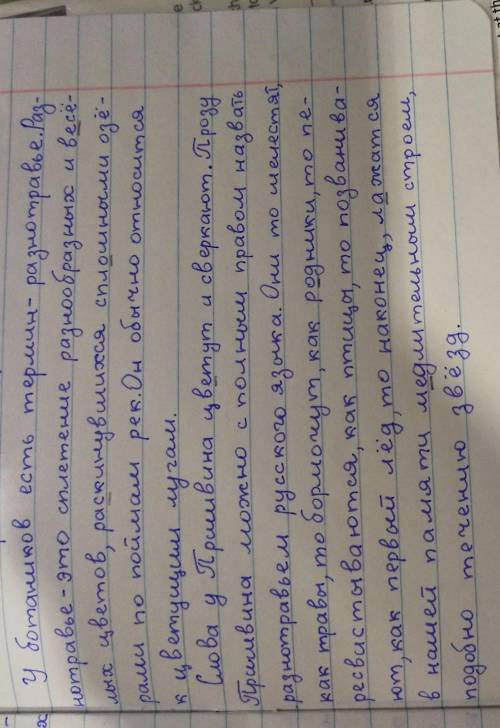 У ботаников есть термин - разнотравье. Раз-
нотравье - это сплетение разнообразных и весё-
лых цветов, раскинувшихся сплошными озё-
рами по поймам рек. Он обычно относится
к цветущим лугам.
Слова у Пришвина цветут и сверкают. Прозу
Пришвина можно с полным правом назвать
разнотравьем русского языка. Они то шелестят,
как травы, то бормочут, как родники, то пе-
ресвистываются, как птицы, то позванива-
ют, как первый лёд, то наконец, лажатся
в нашей памяти медлительным строем,
подобно течению звёзд.